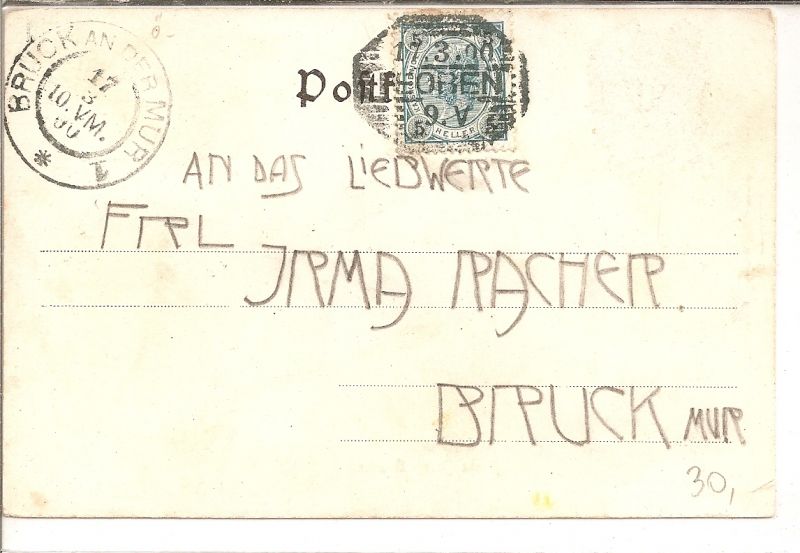 BRUCK AN DER MUR
17
3
10.VM.
00
* 1
15.3.00
9.V
5 HELLER 5
AN DAS LIEBWERTE
FRL
IRMA RACHER
BRUCK MUR
30,-